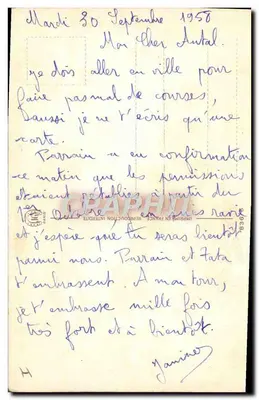 Mardi 30 Septembre 1958
Mon Cher Antal.
Je dois aller en ville pour
faire pas mal de courses,
aussi je ne t'écris qu'une
carte.
Parrain a eu confirmation
ce matin que les permissions
étaient établies à partir du
1er Octobre,
et j'espère que tu seras bientôt
parmi nous. Parrain et Tata
t'embrassent. A mon tour,
je t'embrasse mille fois
très fort et à bientôt.